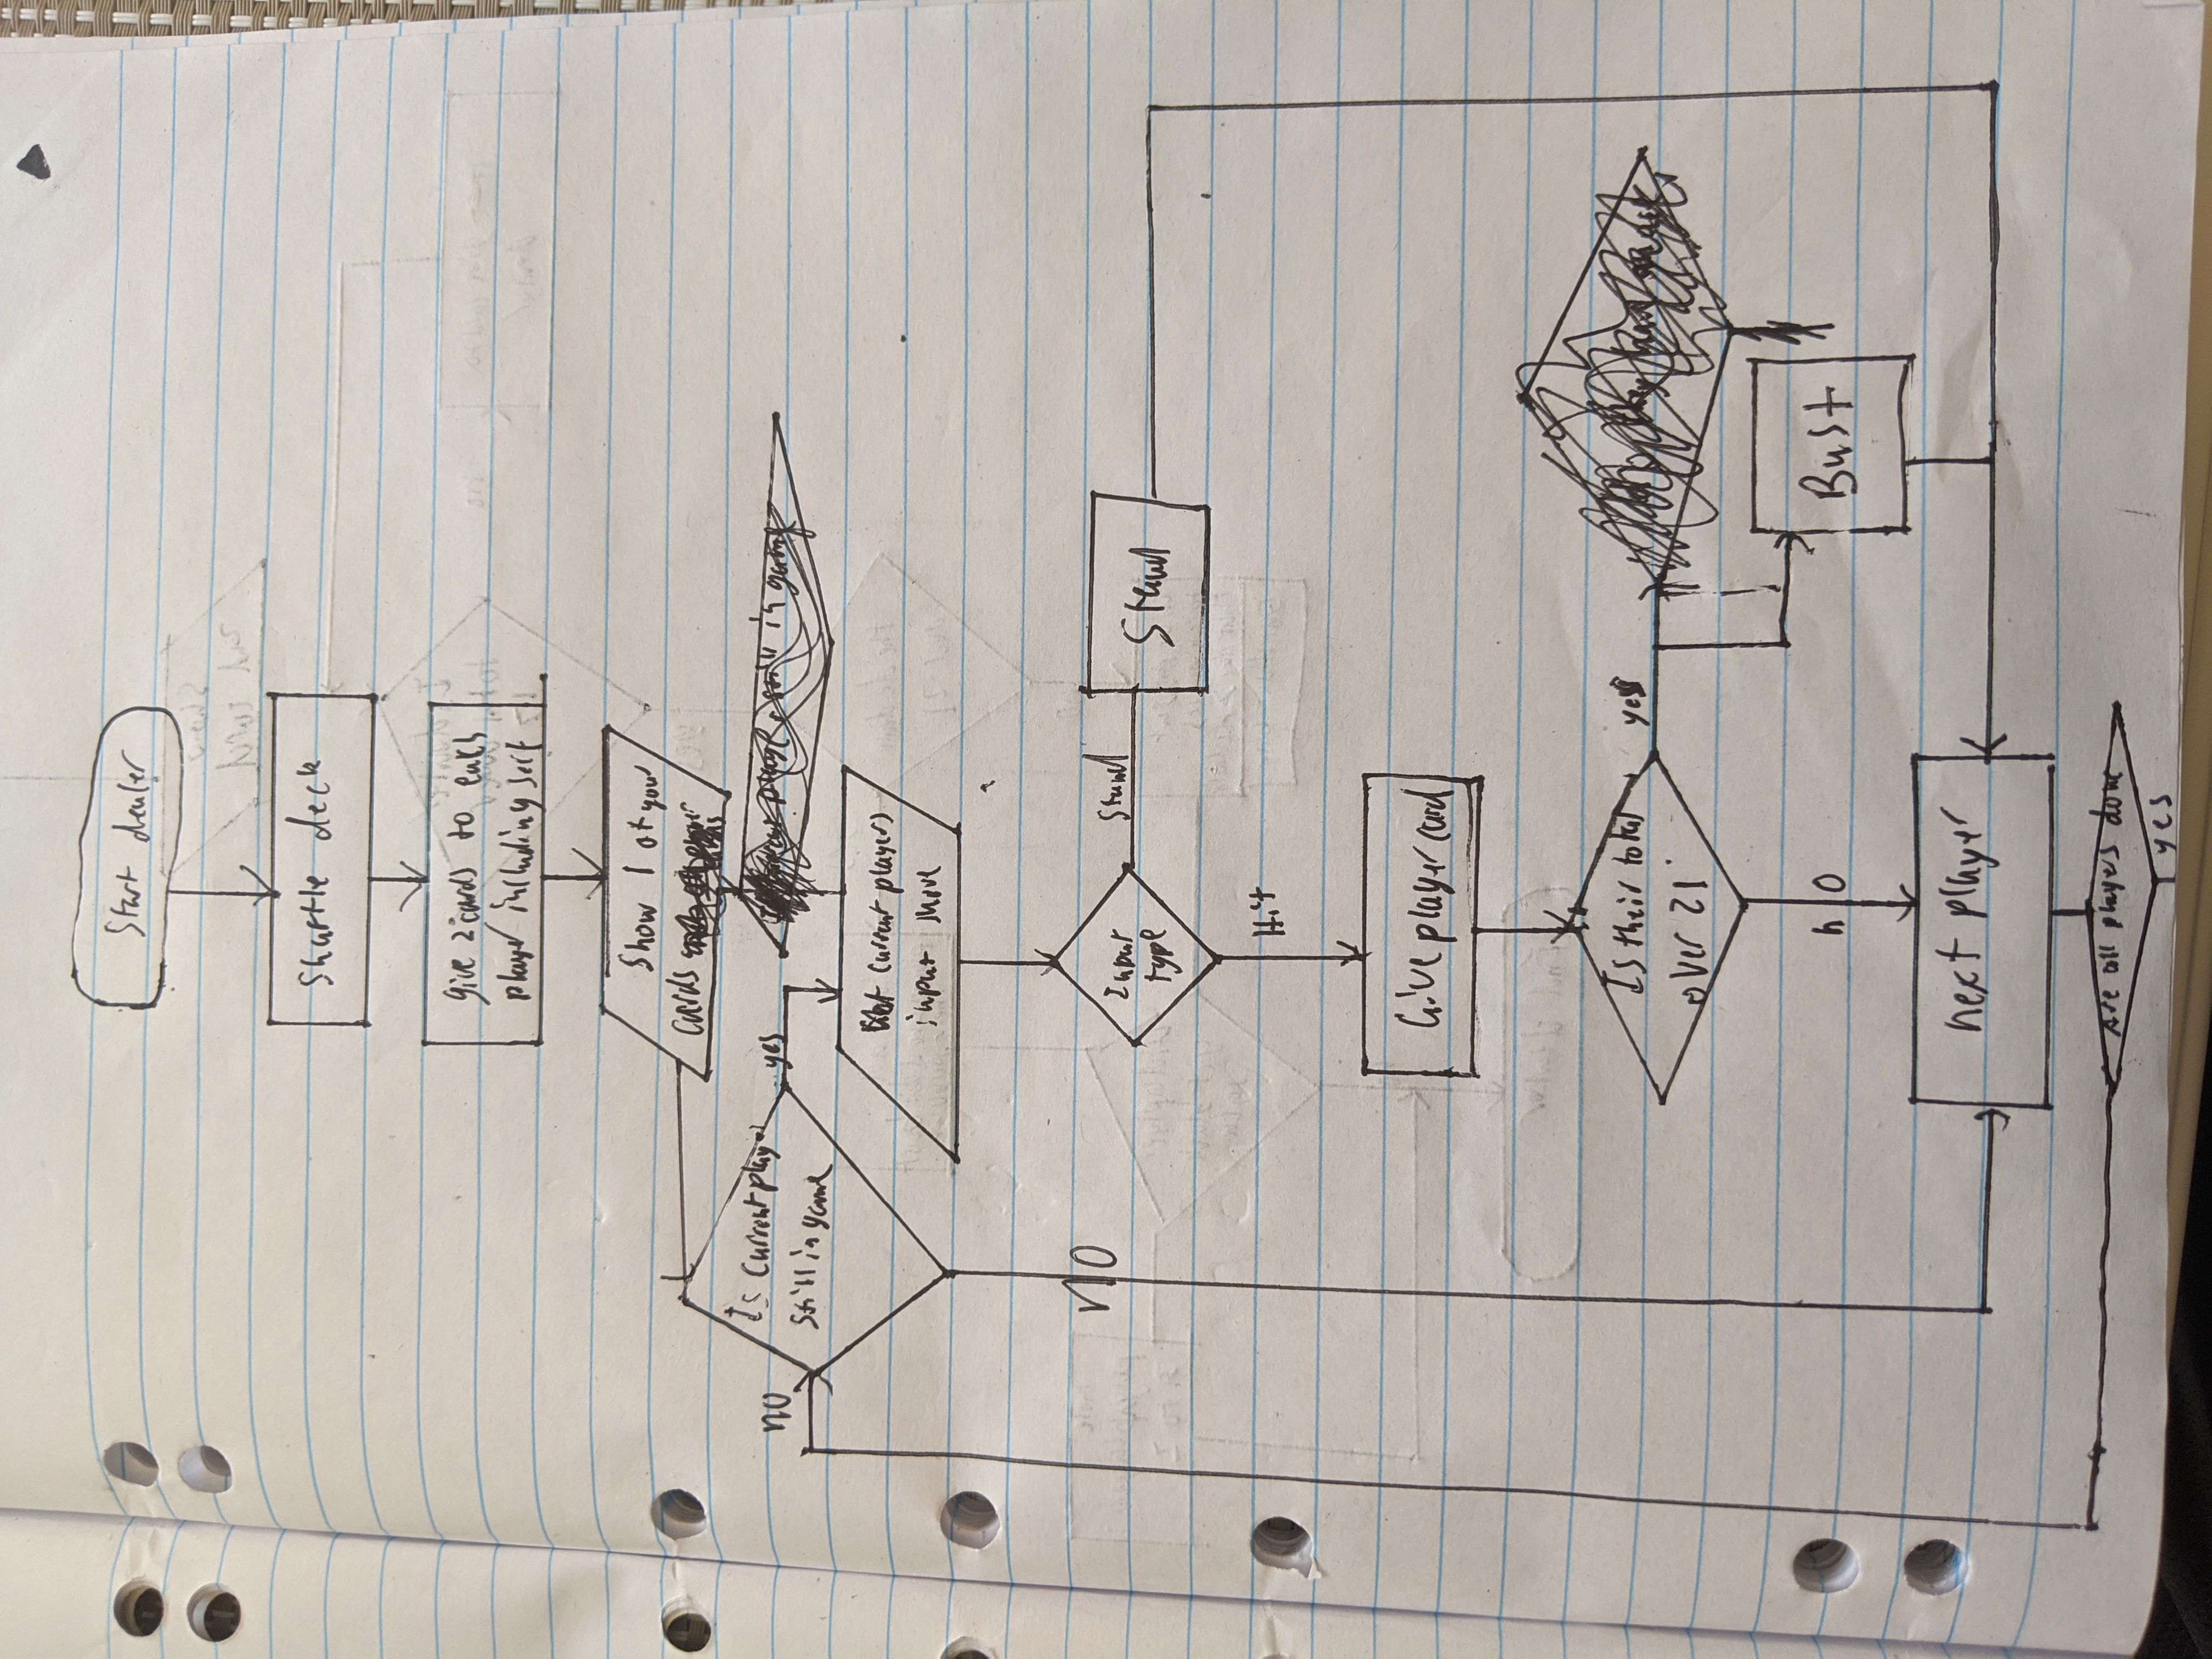 Start dealer
Shuffle deck
give 2 cards to each
player including self
Show 1 of your
cards
Is current player
still in game
no
yes
current players
input move
no
Input
type
Stand
Stand
Hit
Give player card
Is their total
over 21
yes
no
Bust
next player
Are all players done
yes